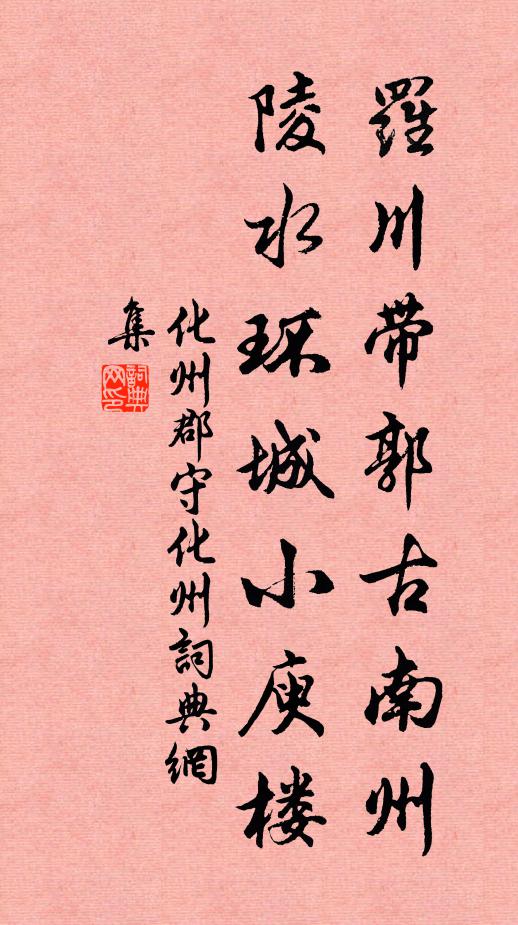 羅川带郭古南州
陵水环城小庾楼
化州郡守化州詞典網
集
詞典
网印